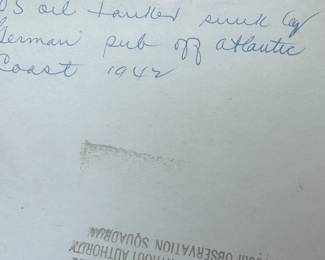 US oil tanker sunk by
German sub off atlantic
Coast 1942
OBSERVATION SQUADRON
WITHOUT AUTHORITY